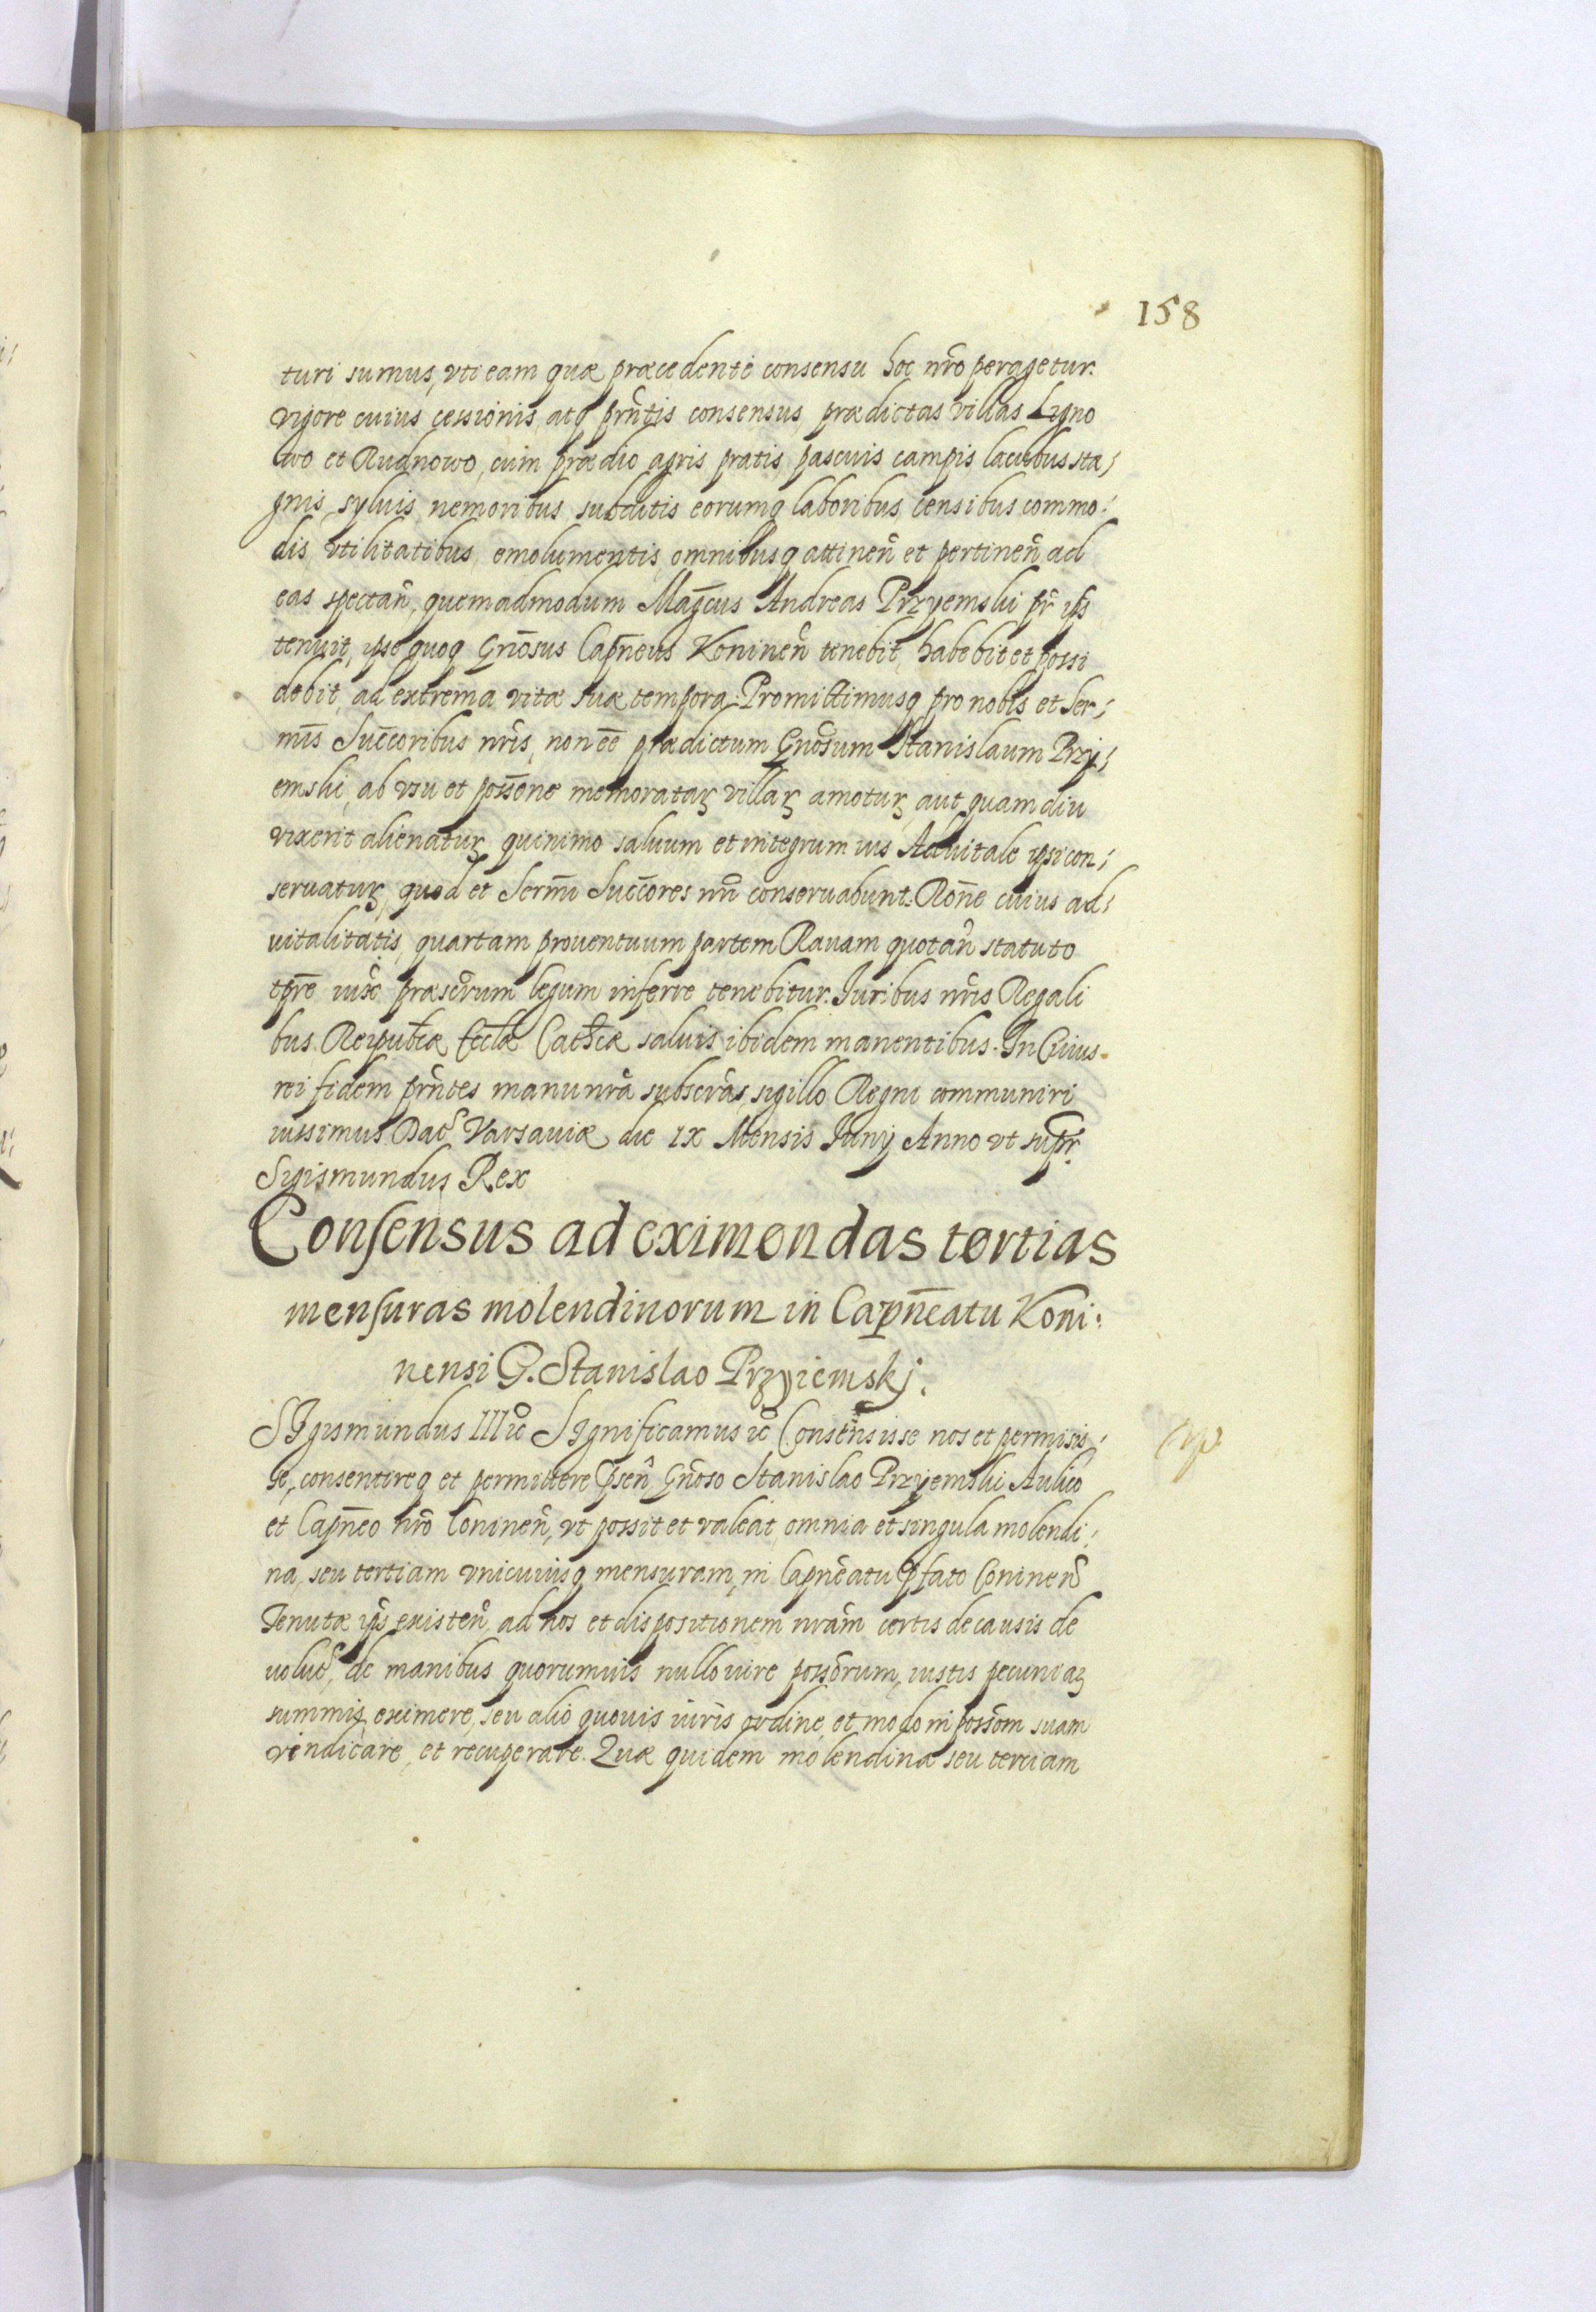 158
turi sumus, vti eam quæ præcedente consensu hoc nr̃o peragetur.
vigore cuius cessionis, atq prñtis consensus, prædictas villas Ligno
wo et Rudnowo, cum prædio agris pratis, pascuis campis lacubus sta,
gnis, syluis, nemoribus, subditis eorumq laboribus, censibus commo:
dis, vtilitatibus, emolumentis, omnibusq attineñ et pertineñ ad
eas spectañ, quemadmodum Magc̃us Andreas Przyemski pr̃ ip̃s
tenuit, ipse quoq Gnõsus Capñeus Konineñ tenebit, habebit et possi
debit, ad extrema vitæ suæ tempora. Promittimusq pro nobis et Ser,
mĩs Succ̃oribus nr̃is, non ẽe prædictum Gnõsum Stanislaum Przy,
emski, ab vsu et possẽone memorataꝝ villaꝝ amotuꝝ, aut quamdiu
vixerit alienatuꝝ, quinimo saluum et integrum ius Aduitale ipsi con,
seruatuꝝ, quod et Serm̃i Succ̃ores nr̃i conseruabunt. Rõne cuius ad,
uitalitatis, quartam prouentuum partem Rauam quotañ statuto
tp̃re iux̃ præscr̃um legum inferre tenebitur. Iuribus nr̃is Regali
bus. Reipub̃cæ Eccl̃æ Cath̃cæ saluis ibidem manentibus. In Cuius
rei fidem prñtes manu nr̃a subscr̃as, sigillo Regni communiri
iussimus. Dat̃ Varsauiæ die IX Mensis Iunij Anno vt supr̃.
Sigismundus Rex
Consensus ad eximendas tertias
mensuras molendinorum in Capñeatu Koni:
nensi G. Stanislao Przyiemskj.
SIgismundus III ic̃ SIgnificamus ic̃ Consensisse nos et permisis,
se, consentireq et permittere p̃señ Gnõso Stanislao Przyemski Aulico
et Capñeo nr̃o Conineñ, vt possit et valeat, omnia et singula molendi,
na, seu tertiam vnicuiusq mensuram, in Capñeatu p̃fato Conineñ
Tenutæ ip̃s existeñ, ad nos et dispositionem nr̃am certis de causis de
uolut̃, de manibus quorumuis nullo iure possõrum, iustis pecuniaꝝ
summis eximere, seu alio quouis iuris ordine, et modo in possõm suam
vindicare, et recuperare. Quæ quidem molendina seu terciam